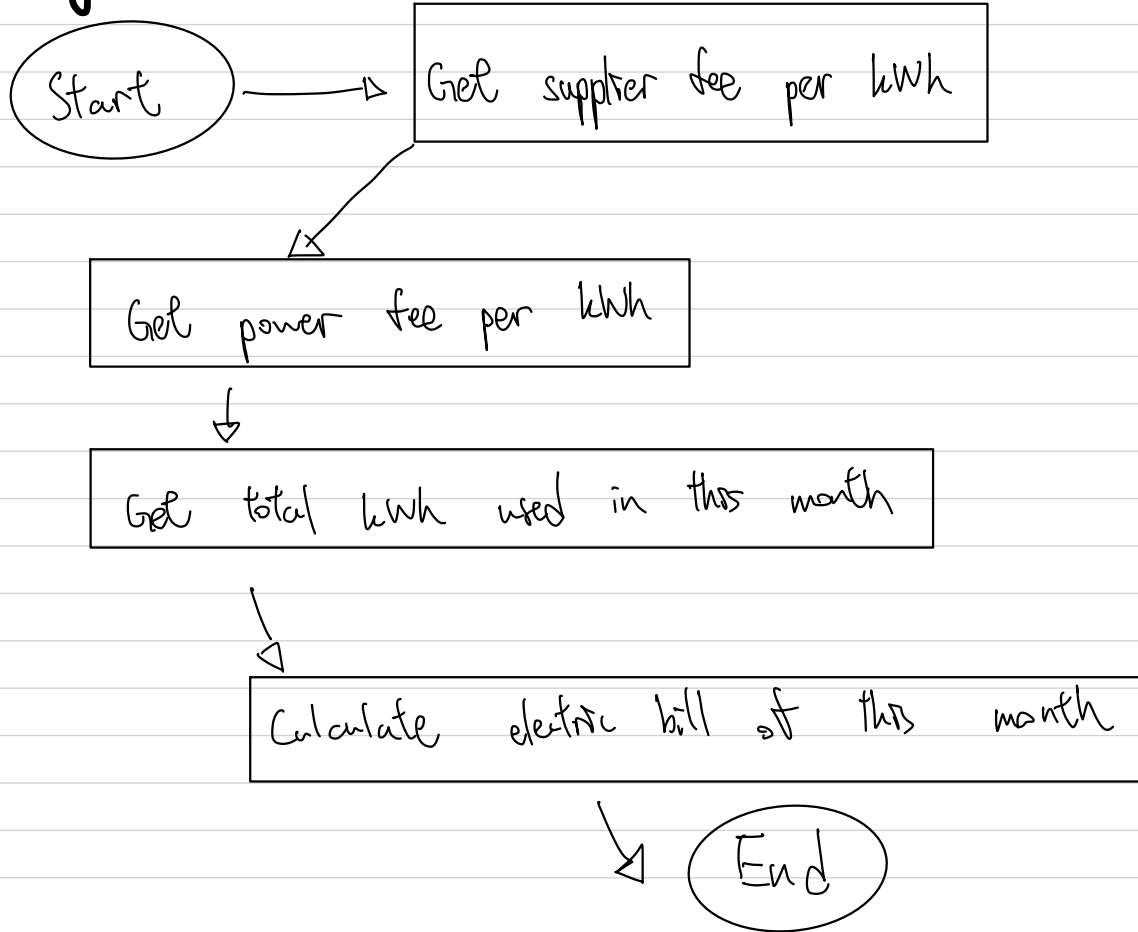 Start
Get supplier fee per kWh
Get power fee per kWh
Get total kWh used in this month
Calculate electric bill of this month
End